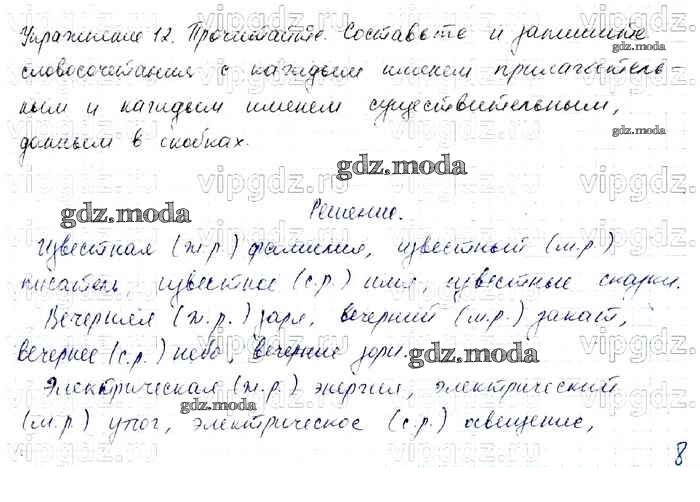 Упражнение 12. Прочитайте. Составьте и запишите
gdz.moda
словосочетания с каждым именем прилагатель-
ным и каждым именем существительным,
данным в скобках.
gdz.moda
gdz.moda
gdz.moda
Решение.
Известная (ж.р.) фамилия, известный (м.р.)
писатель, известное (с.р.) имя, известные сказки.
Вечерняя (ж.р.) заря, вечерний (м.р.) закат,
вечернее (с.р.) небо, вечерние зори.
gdz.moda
Электрическая (ж.р.) энергия, электрический
gdz.moda
(м.р.) утюг, электрическое (с.р.) освещение,
8
vipgdz.ru